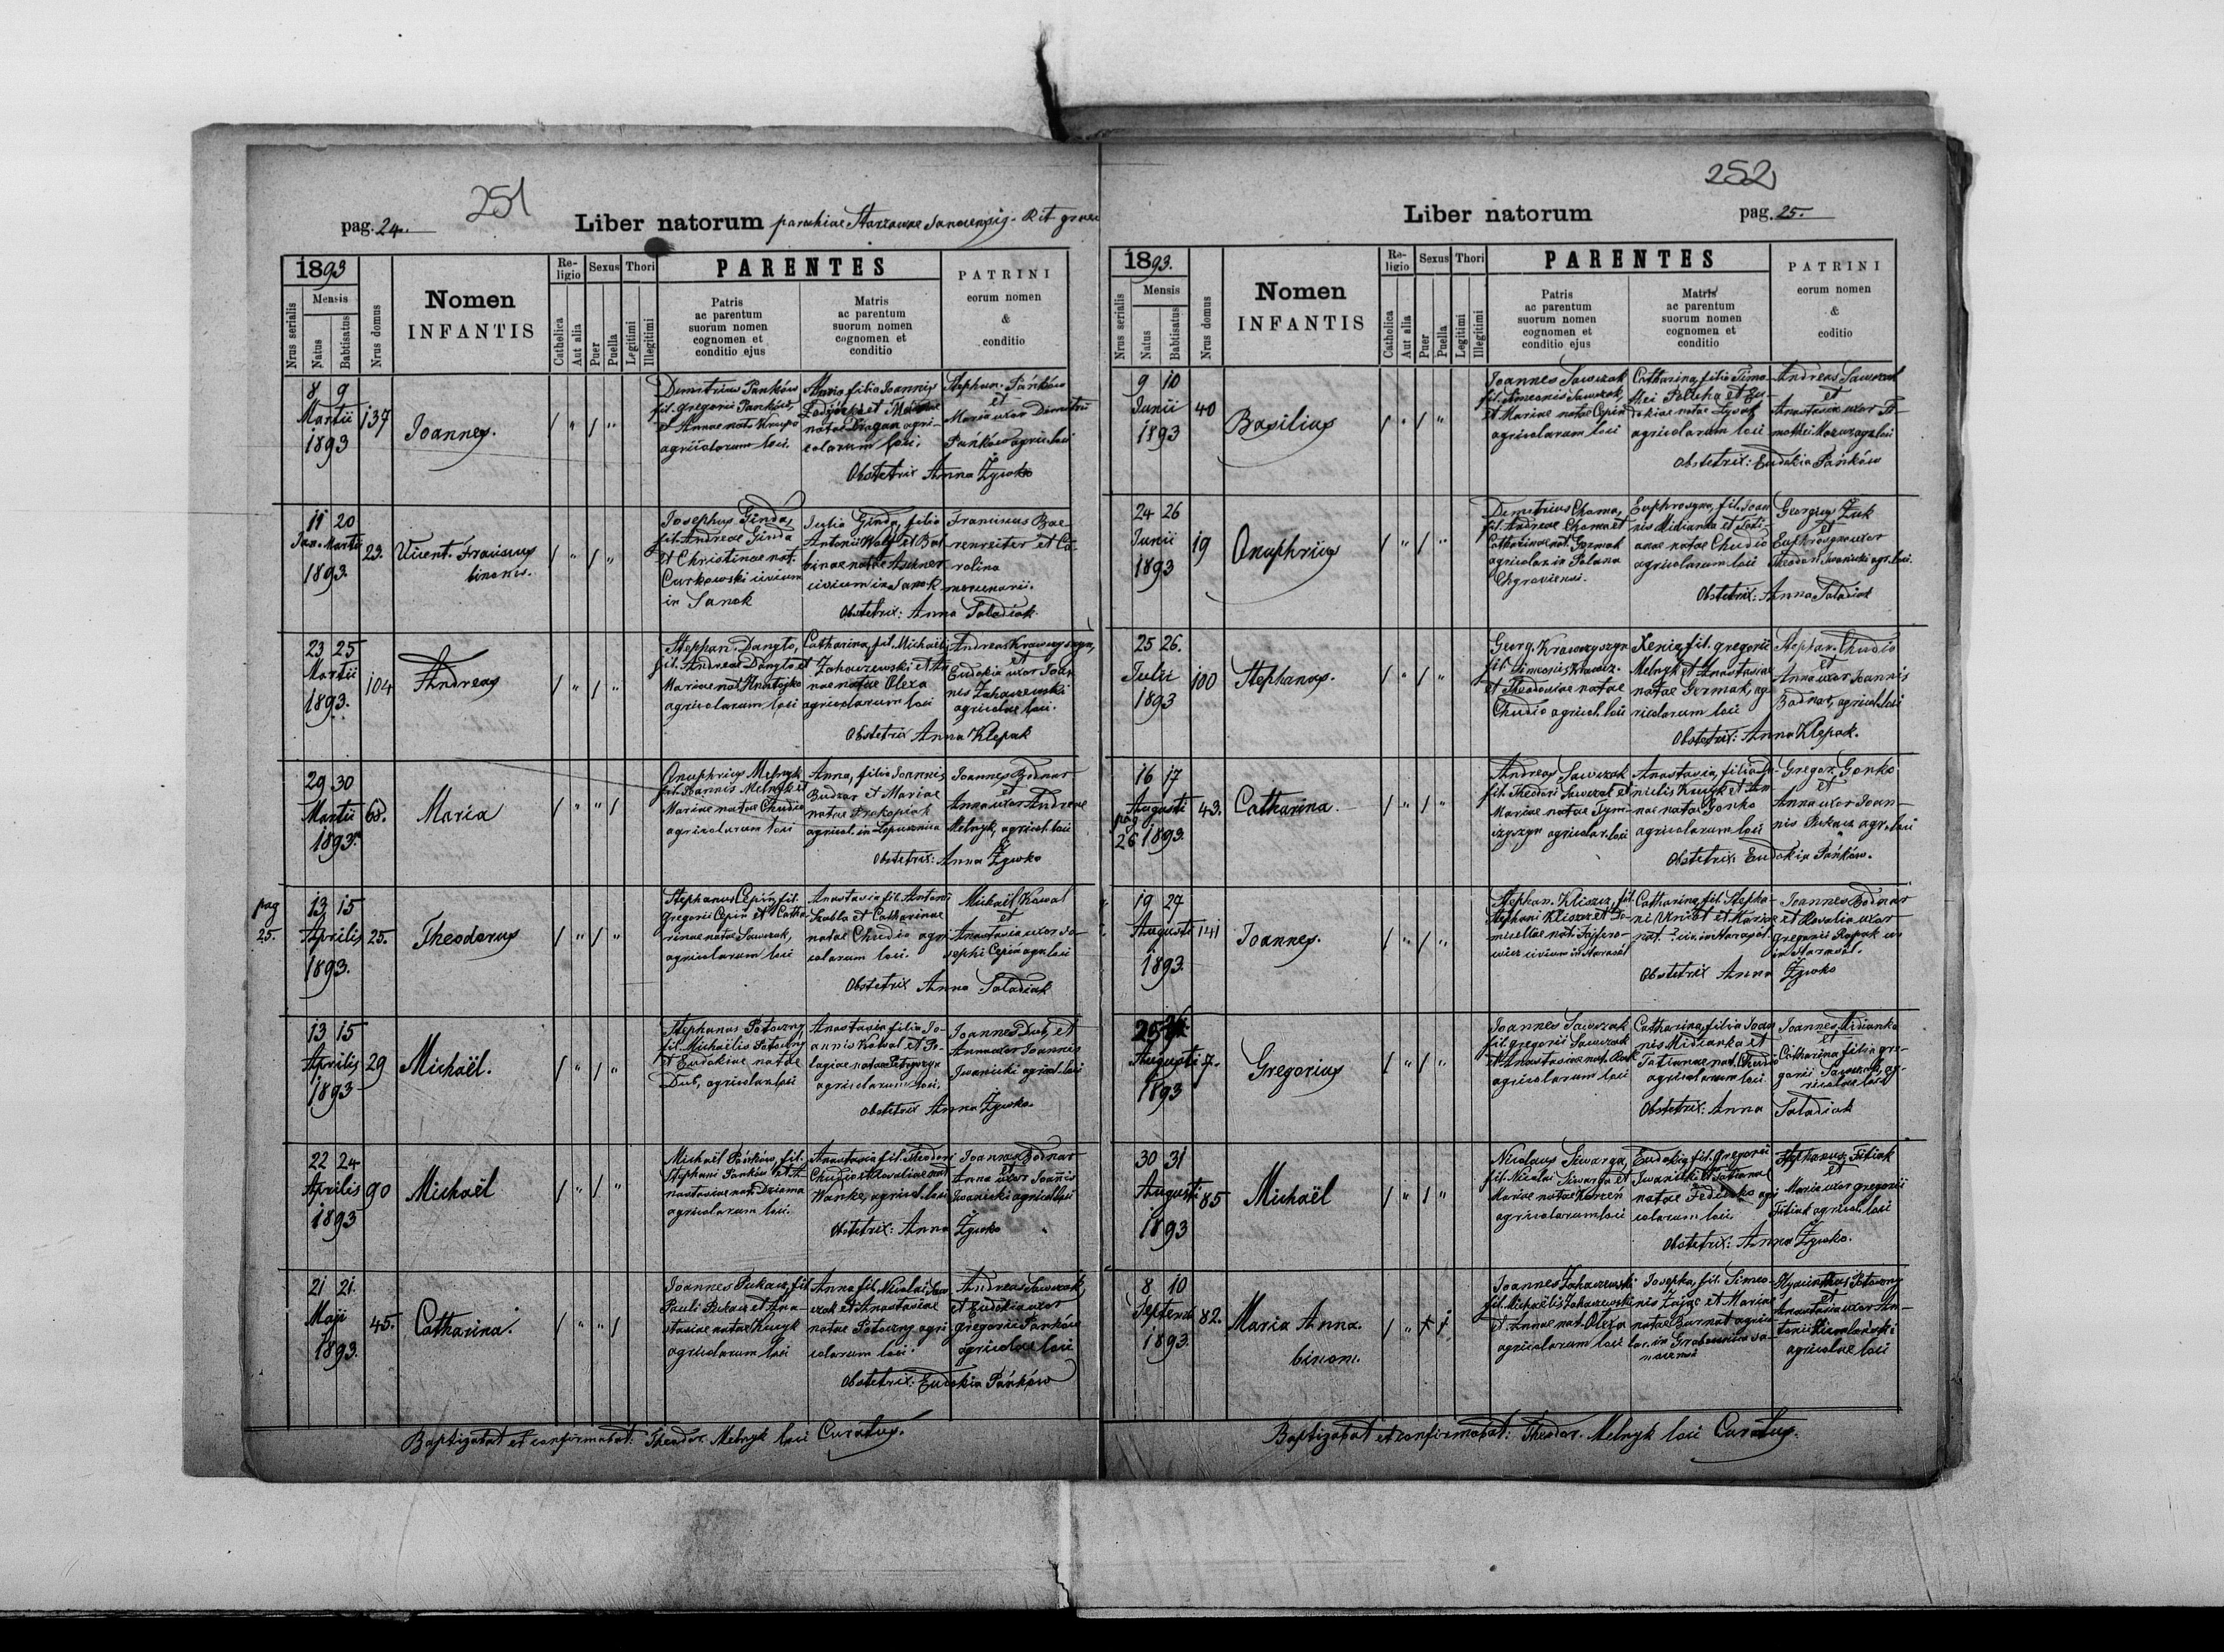 251
pag. 24.
Liber natorum parochiae Starzawae Sanocensis. Rit graec
1893
Nrus serialis
Mensis
Natus
Babtisatus
Nrus domus
Nomen
INFANTIS
Re-
ligio
Catholica
Aut alia
Sexus
Puer
Puella
Thori
Legitimi
Illegitimi
PARENTES
Patris
ac parentum
suorum nomen
cognomen et
conditio ejus
Matris
ac parentum
suorum nomen
cognomen et
conditio
PATRINI
eorum nomen
&
conditio
8 9
Martii
1893
137
Joannes.
Demetrius Pańków
fil. Gregorii Pańków,
et Annae natae
agricolarum loci.
Maria filia Joannis
et
natae Dragan agri-
colarum loci.
Stephan. Pańków
et
Maria uxor Demetrii
Pańków agricolae loci
Obstetrix Anna Żywko
11 20
Jan. Martii
1893.
23.
Vincent. Franciscus
binonis.
Josephus Ginda,
fil. Andreae Ginda
et Christinae nat.
Curkowski civium
in Sanok
Julia Ginda, filia
Antonii Wolf et Bal
binae natae
civium in Sanok
Franciscus Bae-
renreiter et Ca-
rolina
mercenarii.
Obstetrix: Anna Saladiak
23 25
Martii
1893.
104
Andreas
Steppan. Danyło,
fil. Andreae Danyło et
Mariae nat. Hnatejko
agricolarum loci
Catharina, fil. Michaelis
Zahaczewski et An
nae natae Olexa
agricolarum loci
Andreas Krawczyszyn,
et
Eudokia uxor Joan
nis Zahaczewski
agricolae loci.
Obstetrix Anna Klepak
29 30
Martii
1893.
68.
Maria
Onuphrius Melnyk
fil. Joannis Melnyk et
Mariae natae Chudio
agricolarum loci
Anna, filia Joannis
Budzar et Mariae
natae Prokopiak
agricol. in Lopusznica
Joannes Bodnar
et
Anna uxor Andreae
Melnyk, agricol. loci
Obstetrix: Anna Żywko
pag
25.
13 15
Aprilis
1893.
25.
Theodorus
Stephanus Cepin, fil.
Gregorii Cepin et Catha-
rinae natae Sawczak,
agricolarum loci
Anastasia fil. Antonii
Szabla et Catharinae
natae Chudio agri-
colarum loci.
Michaël Kowal
et
Anastasia uxor Jo-
sephi Cepin agr. loci
Obstetrix Anna Saladiak
13 15
Aprilis
1893
29
Michaël.
Stephanus Potoczny,
fil. Michaelis Potoczny
et Eudokiae natae
Dub, agricolar. loci
Anastasia filia Jo-
annis Kowal et Pe-
lagiae natae
agricolarum loci,
Joannes Dub, et
Anna uxor Joannis
Iwanicki agricol. loci
Obstetrix Anna Żywko.
22 24
Aprilis
1893
90
Michaël
Michaël Pańków, fil.
Stephani Pańków et A
nastasiae nat. Dziama
agricolarum loci.
Anastasia fil. Theodori
Chudio et Rosaliae nat.
Wańko, agricol. loci
Joannes Bodnar
et
Anna uxor Joannis
Iwanicki agricol. loci
Obstetrix: Anna Żywko
21 21.
Maji
1893.
45.
Catharina.
Joannes Pukacz, fil.
Pauli Pukacz et Ana-
stasiae natae Kucyk
agricolarum loci
Anna fil. Nicolai Saw
czak et Anastasiae
natae Potoczny agri
colarum loci.
Andreas Sawczak,
et Eudokia uxor
Gregorii Pańków
agricolae loci
Obstetrix: Eudokia Pańków
Baptizabat et confirmabat: Theodor. Melnyk loci Curatus.
252
Liber natorum
pag. 25.
1893.
Nrus serialis
Mensis
Natus
Babtisatus
Nrus domus
Nomen
INFANTIS
Re-
ligio
Catholica
Aut alia
Sexus
Puer
Puella
Thori
Legitimi
Illegitimi
PARENTES
Patris
ac parentum
suorum nomen
cognomen et
conditio ejus
Matris
ac parentum
suorum nomen
cognomen et
conditio
PATRINI
eorum nomen
&
coditio
9 10
Junii
1893
40
Basilius
Joannes Sawczak
fil. Simeonis Sawczak,
et Mariae natae Cepin
agricolarum loci
Catharina, filia Timo-
thei Pecuha et Eu-
dokiae natae Łysak
agricolarum loci
Andreas Sawczak
et
Anastasia uxor Ti-
mothei Mazur agr. loci
Obstetrix: Eudokia Pańków
24 26
Junii
1893
19
Onuphrius
Demetrius Choma,
fil. Andreae Choma et
Catharinae nat. Germak
agricolar. in Polana
Chyroviensi.
Euphrosyna, fil. Joan
nis Midianka et Tati-
anae natae Chudio
agricolarum loci
Georgius Żuk
et
Euphrosyna uxor
Theodori Iwanicki agr. loci.
Obstetrix: Anna Saladiak
25 26.
Julii
1893
100
Stephanus.
Georg. Krawczyszyn
fil. Simeonis Krawcz.
et Theodosiae natae
Chudio agricol. loci
Xenia, fil. Gregorii
Melnyk et Anastasiae
natae Germak, ag
ricolarum loci
Stephan. Chudio
et
Anna uxor Joannis
Bodnar, agricol. loci
Obstetrix: Anna Klepak.
16 17
Augusti
1893.
pag
26
43.
Catharina.
Andreas Sawczak
fil. Theodori Sawczak et
Mariae natae Tym-
czyszyn agricolar. loci
Anastasia, filia Da-
nielis Kucyk et An
nae natae Gonko
agricolarum loci
Gregor. Gonko
et
Anna uxor Joan-
nis Pukacz agr. loci
Obstetrix: Eudokia Pańków.
19 27
Augusti
1893.
141
Joannes.
Stephan. Kliszcz, fil.
Stephani Kliszcz et Do-
micellae nat.
civium in Starasól
Catharina, fil. Stepha-
ni Unicot et Mariae
nat. ? civ. in Starasól.
Joannes Bodnar
et Rosalia uxor
Gregorii Rapak
in Starasól.
Obstetrix Anna Żywko
25
Augusti
1893
7.
Gregorius
Joannes Sawczak
fil. Gregorii Sawczak
et Anastasiae nat.
agricolarum loci
Catharina, filia Joan
nis Midianka et
Tatianae nat. Chudio
agricolarum loci
Joannes Midianka
et
Catharina filia Gre-
gorii Sawczak, ag-
ricolae loci
Obstetrix: Anna Saladiak
30 31
Augusti
1893
85
Michaël
Nicolaus Siwarga,
fil. Nicolai Siwarga et
Mariae natae Korzeń
agricolarum loci
Eudokia, fil. Gregorii
Iwanicki et Tatianae
natae Fedićzko agri
colarum loci.
Stephanus Fitiak
et
Maria uxor Gregorii
Fitiak agricol. loci
Obstetrix: Anna Żywko.
8 10
Septemb.
1893.
82.
Maria Anna.
binom.
Joannes Zahaczewski
fil. Michaëlis Zahaczewski
et Annae nat. Olexa
agricolarum loci
Josepha, fil. Simeo-
nis Zając et Mariae
natae Barnat agrico
lar. in Grabownica sa-
nocensi
Hyacinthus Potoczny
et
Anastasia uxor An-
tonii
agricolae loci
Baptizabat et confirmabat: Theodor. Melnyk loci Curatus.